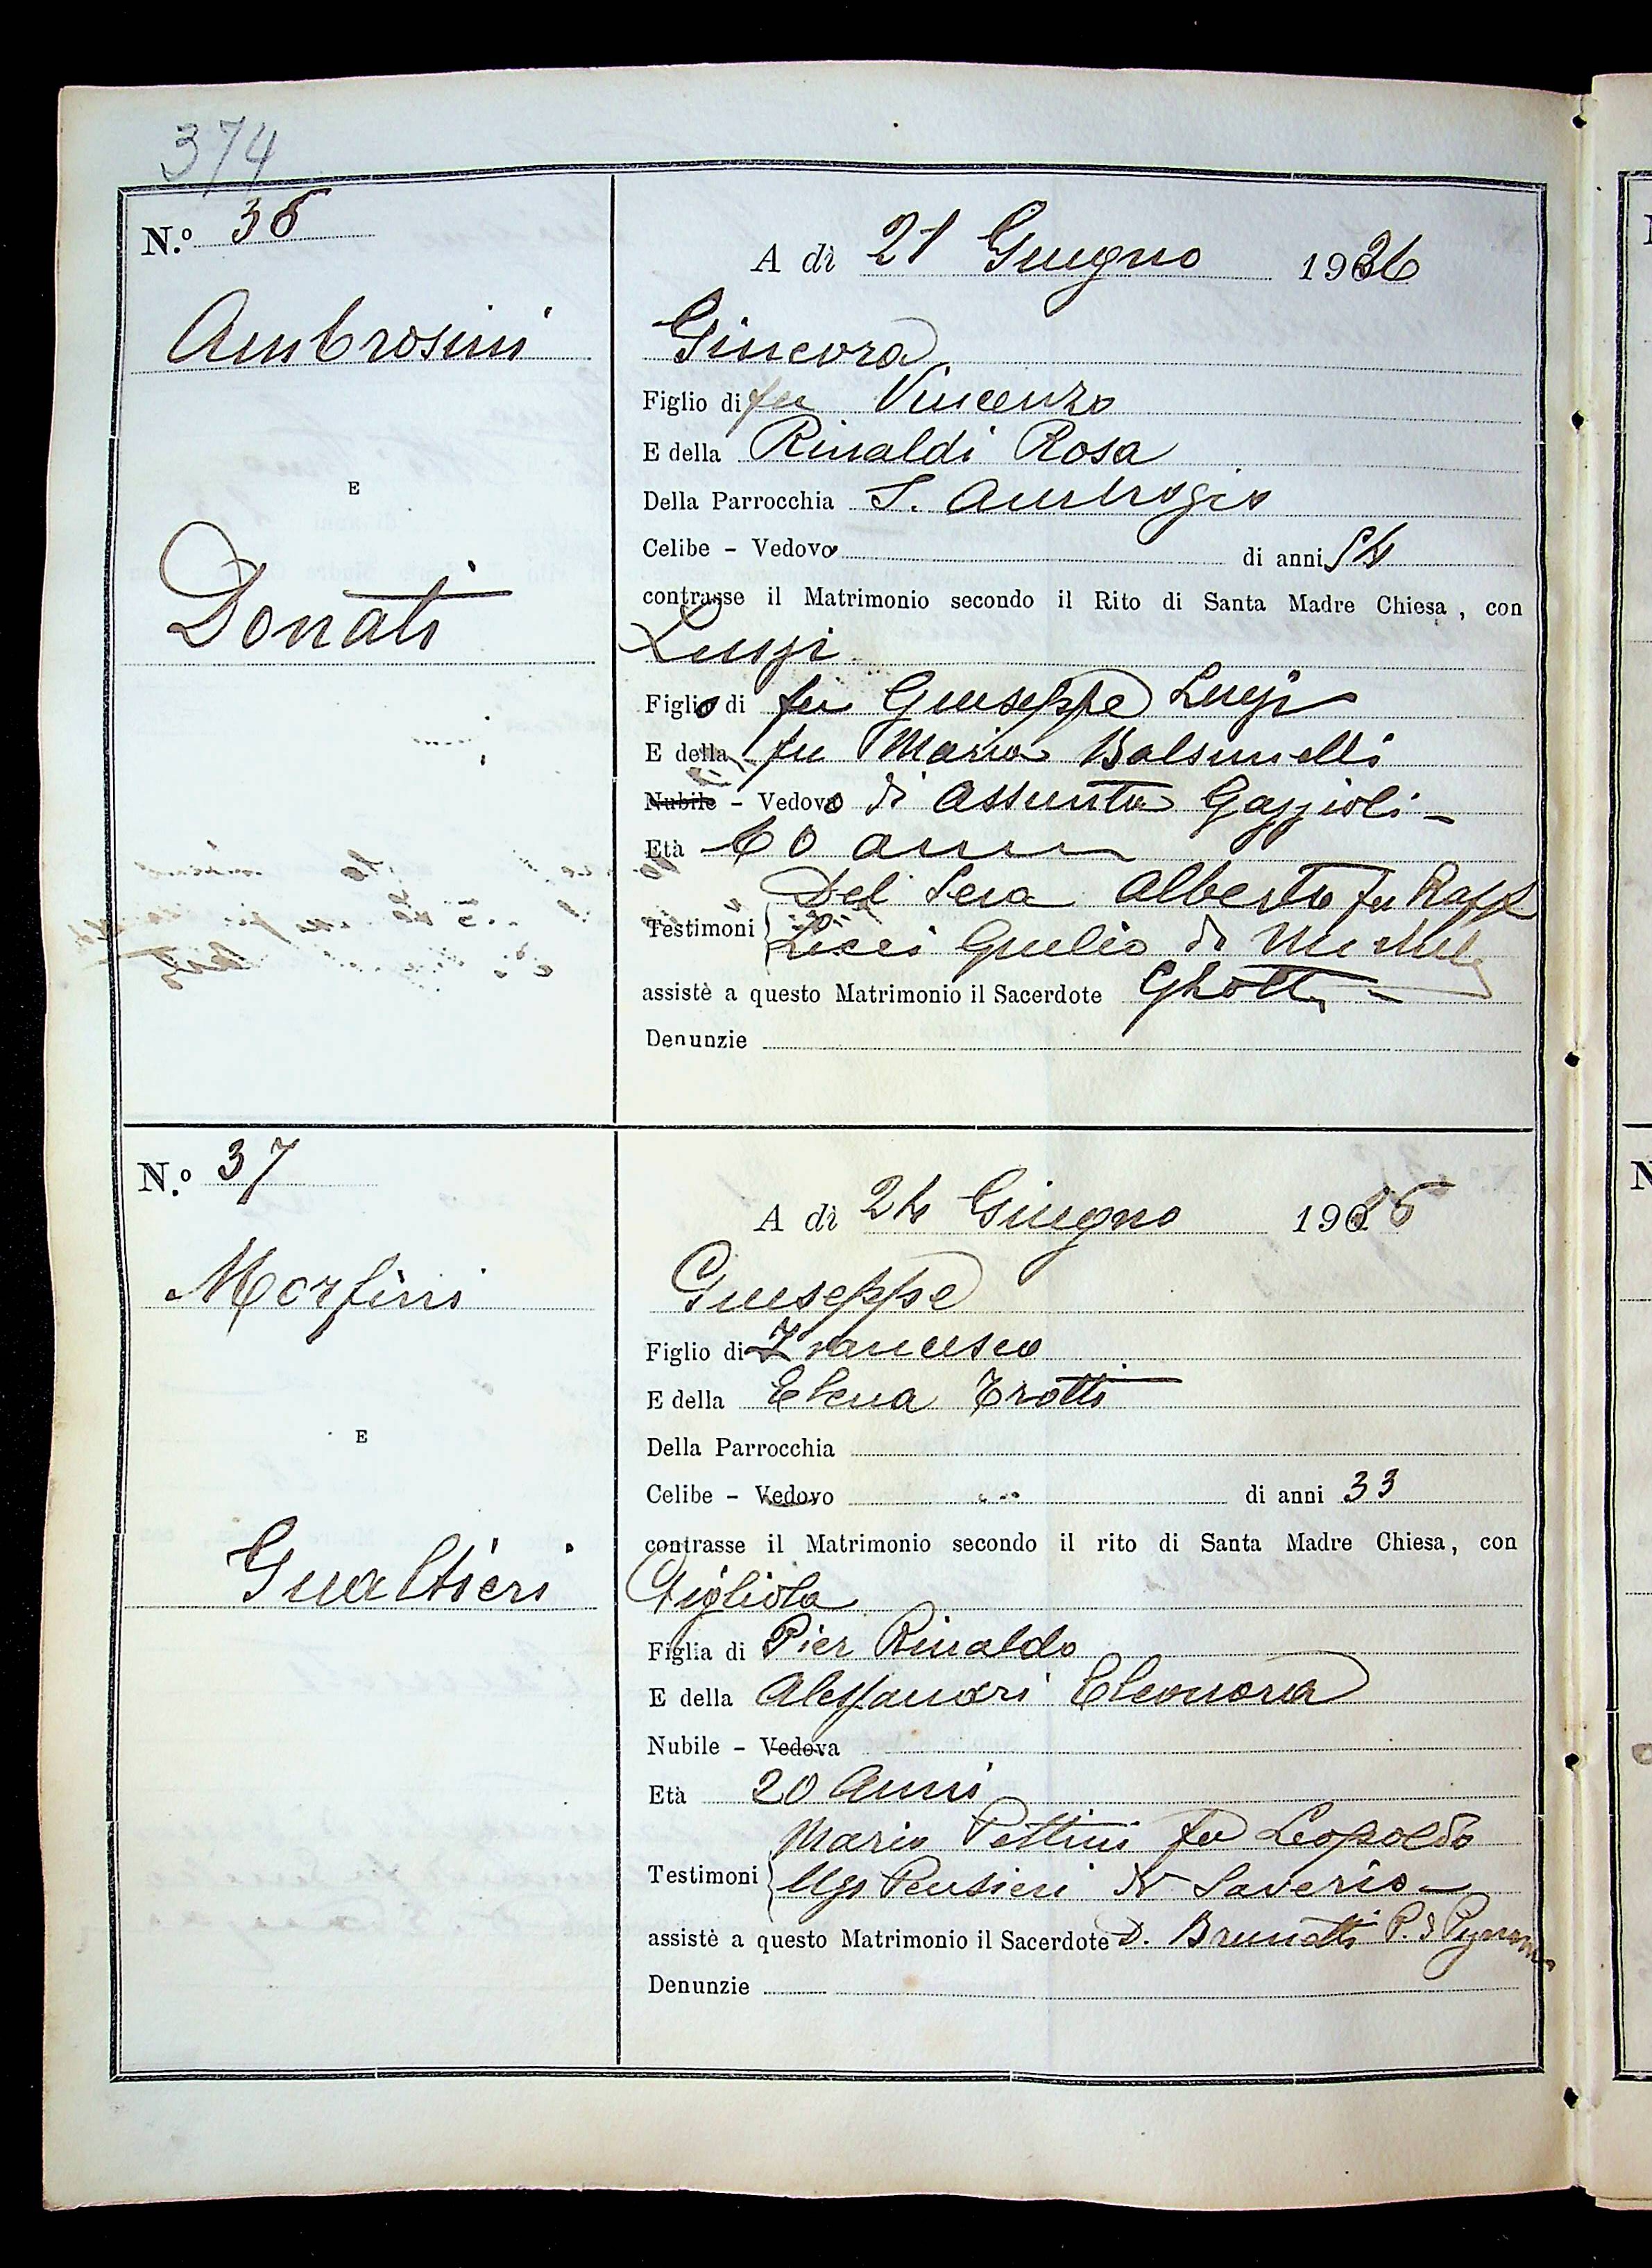 374
N.º 36
A dì 21 Giugno 1926
Ambrosini
Ginevra
Figlio di fu Vincenzo
E della Rinaldi Rosa
Della Parrocchia S. Ambrogio
E
Celibe - Vedovo di anni 54
contrasse il Matrimonio secondo il Rito di Santa Madre Chiesa, con
Donati
Luigi
Figlio di fu Giuseppe Luigi
E della fu Maria Balsimelli
Nubile - Vedovo di Assunta Gaggioli -
Età 60 anni
Del Sera Alberto fu Raff
Testimoni
Giulio di
assistè a questo Matrimonio il Sacerdote Ghotti -
Denunzie
N.º 37
A dì 24 Giugno 19
Morfini
Giuseppe
Figlio di Francesco
E della Elena Trotti
Della Parrocchia
E
Celibe - Vedovo di anni 33
contrasse il Matrimonio secondo il rito di Santa Madre Chiesa, con
Gualtieri
Gigliola
Figlia di Pier Rinaldo
E della Alessandri Eleonora
Nubile - Vedova
Età 20 Anni
Mario Pettini fu Leopoldo
Testimoni
Ugo Pensieri di Saverio -
assistè a questo Matrimonio il Sacerdote D. Brunetti P. d
Denunzie